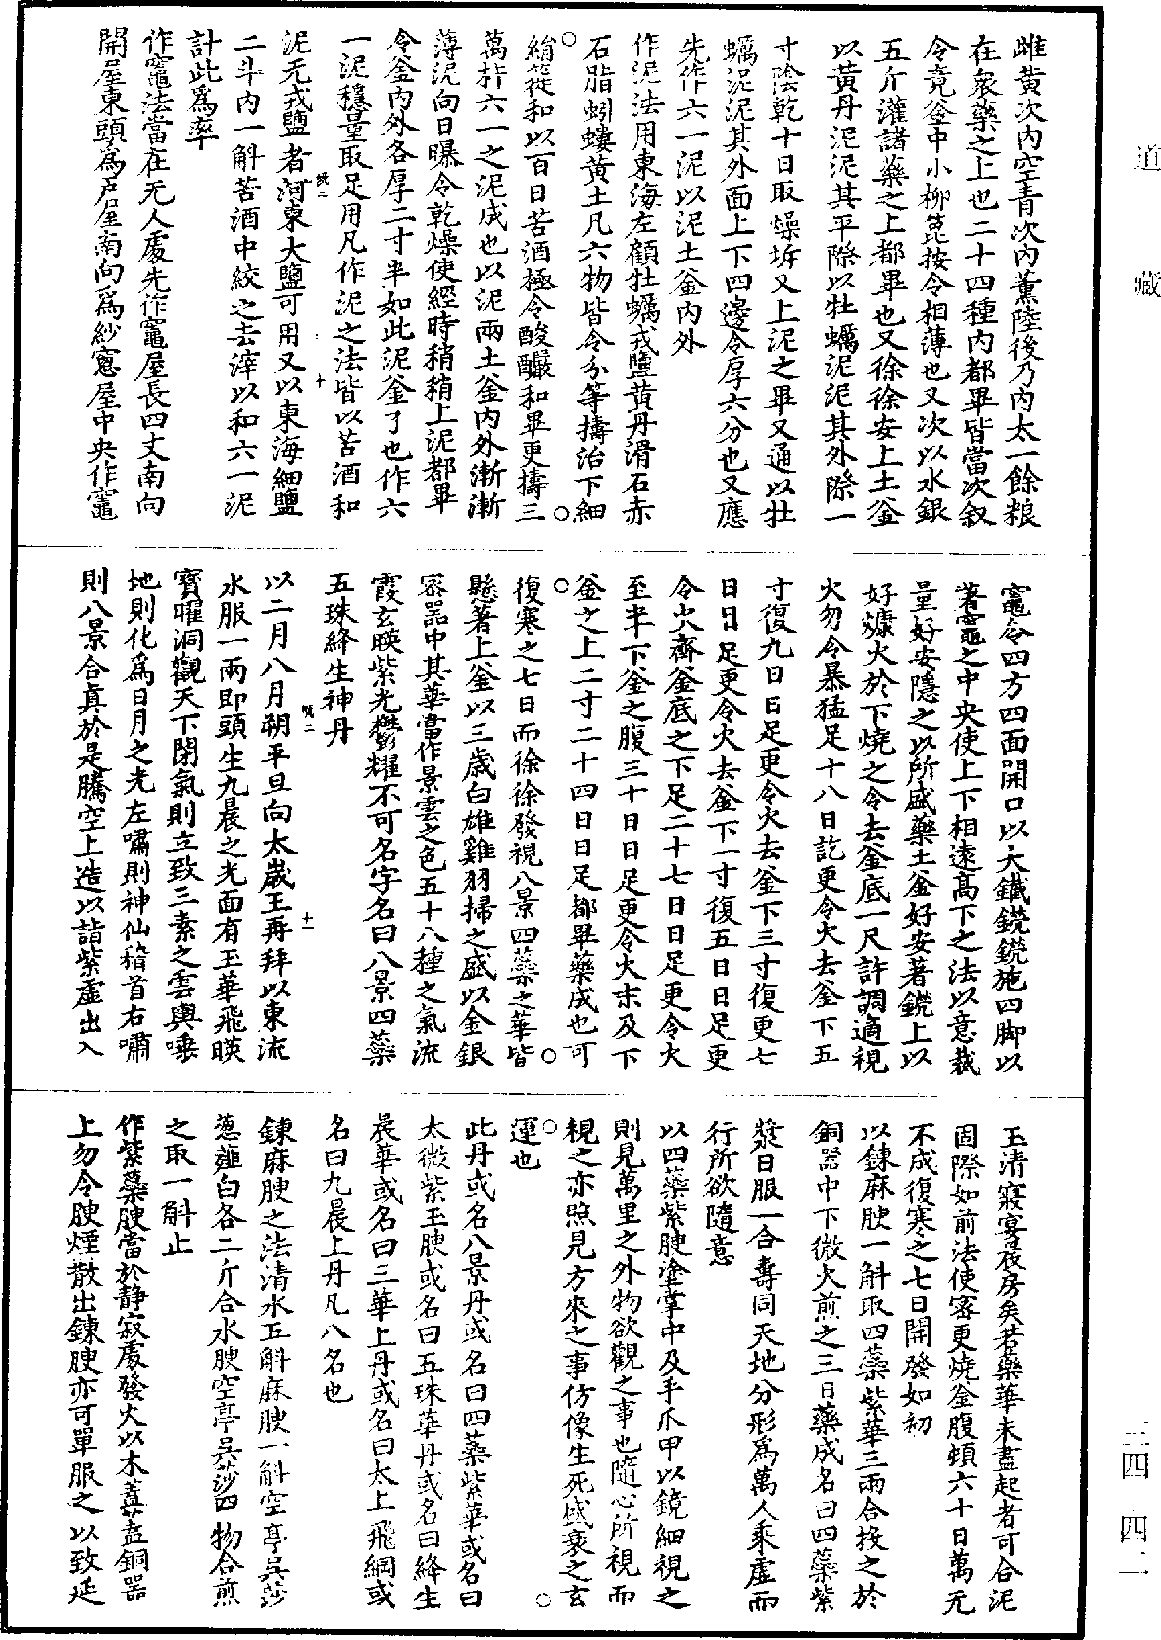 道藏
雌黃次內空青次內薰陸後乃內太一餘粮
在衆藥之上也二十四種內都畢皆當次叙
令竟釜中小柳箆按令相薄也又次以水銀
五斤灌諸藥之上都畢也又徐徐安上土釜
以黃丹泥泥其平際以牡蠣泥泥其外際一
寸陰乾十日取燥坼又上泥之畢又通以牡
蠣泥泥其外面上下四邊令厚六分也又應
先作六一泥以泥土釜內外
作泥法用東海左顧牡蠣戎鹽黃丹滑石赤
石脂蚓螻黃土凡六物皆令分等擣治下細
絹簁和以百日苦酒極令酸釅和畢更擣三
萬杵六一之泥成也以泥兩土釜內外漸漸
薄泥向日曝令乾燥使經時稍稍上泥都畢
令釜內外各厚二寸半如此泥釜了也作六
一泥穩量取足用凡作泥之法皆以苦酒和
泥无戎鹽者河東大鹽可用又以東海細鹽
二斗內一斛苦酒中絞之去滓以和六一泥
計此爲率
作竈法當在无人處先作竈屋長四丈南向
開屋東頭爲戶屋南向爲紗窻屋中央作竈
竈令四方四面開口以大鐵鐃鐃施四脚以
著竈之中央使上下相遠高下之法以意裁
量好安隱之以所盛藥土釜好安著鐃上以
好㷻火於下燒之令去釜底一尺許調適視
火勿令暴猛足十八日訖更令火去釜下五
寸復九日日足更令火去釜下三寸復更七
日日足更令火去釜下一寸復五日日足更
令火齊釜底之下足二十七日日足更令火
至半下釜之腹三十日日足更令火末及下
釜之上二寸二十四日日足都畢藥成也可
復寒之七日而徐徐發視八景四蘂之華皆
懸著上釜以三歲白雄雞羽掃之盛以金銀
宻器中其華當作景雲之色五十八種之氣流
霞玄暎紫光鬱耀不可名字名曰八景四蘂
五珠絳生神丹
以二月八月朔平旦向太歲王再拜以東流
水服一兩即頭生九晨之光面有玉華飛暎
寳曜洞觀天下閉氣則立致三素之雲輿唾
地則化爲日月之光左嘯則神仙稽首右嘯
則八景合眞於是騰空上造以詣紫虛出入
玉清寢宴晨房矣若藥華未盡起者可合泥
固際如前法使宻更燒釜腹頓六十日萬无
不成復寒之七日開發如初
以鍊麻腴一斛取四蘂紫華三兩合投之於
銅器中下微火煎之三日藥成名曰四蘂紫
漿日服一合壽同天地分形爲萬人乘虛而
行所欲隨意
以四蘂紫腴塗掌中及手爪甲以鏡細視之
則見萬里之外物欲觀之事也隨心所視而
視之亦照見方來之事仿像生死盛衰之玄
運也
此丹或名八景丹或名曰四蘂紫華或名曰
太微紫玉腴或名曰五珠華丹或名曰絳生
晨華或名曰三華上丹或名曰太上飛綱或
名曰九晨上丹凡八名也
鍊麻腴之法清水五斛麻腴一斛空亭吳莎
葱薤白各二斤合水腴空亭吳莎四物合煎
之取一斛止
作紫蘂腴當於静寂處發火以木蓋蓋銅器
上勿令腴煙散出鍊腴亦可單服之以致延
三四 四二